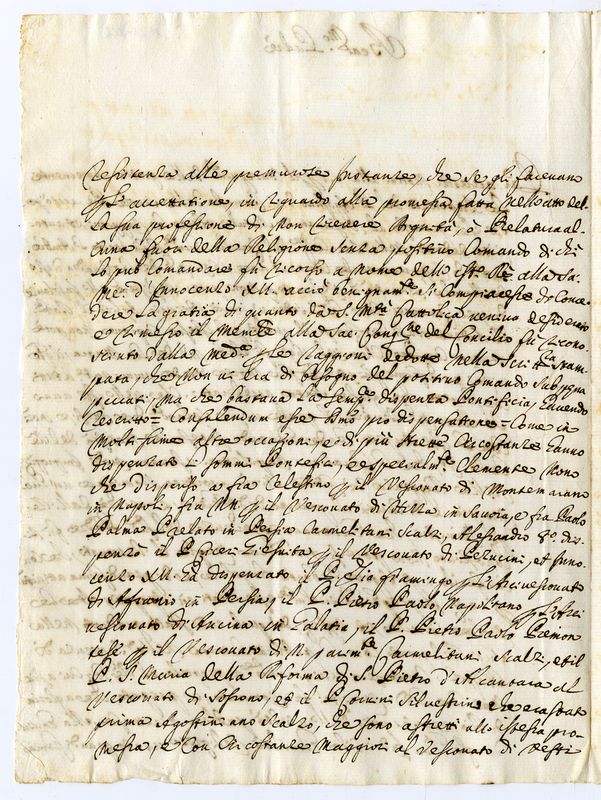 resistenza alle premurose instanze, che se gli facevano
p l'accettatione, in riguardo alla promessa fatta nell'atto del
la sua professione di non ricevere Dignità, ò Prelatura al-
cuna fuori della Religione senza positivo Comando di chi
lo può Comandare fù ricorso a nome dello stes.o Rè alla Sa.
Me. d'Innocenzo XII. acciò benignam.te si Compiacesse di Conce
dere la gratia di quanto da S. M.tà Cattolica veniva desiderato
et rimesso il Mem.le alla Sac. Cong.ne del Concilio fù ricono
sciuto dalla med.a p le raggioni dedotte nella Scritt.ra stam
pata, che non vi era di bisogno del positivo Comando sub pena
peccati, ma che bastava la semp.e dispenza Pontificia, havendo
rescritto = Consulendum esse SSmo pro dispensatione = Come in
moltissime altre occasioni, e di più strette Circostanze hanno
dispensato li Sommi Pontefici, e especialm.te Clemente Nono
che dispensò a fra Celestino p il Vescovato di Montemarano
in Napoli, fra NN p il Vescovato di in Savoia, e fra Paolo
Palma Prelato in Persia Carmelitani Scalzi, Alesandro 8.o dis-
penzò il P. Giesuita p il Vescovato di et Inno-
cenzo XII. hà dispenzato il P. Elia fiamengo p l'Arcivescovato
di in Persia, il P. Pietro Paolo Napolitano p l'Arci
vescovato di Ancira in Galatia, il P. Pietro Paolo Piemon
tese p il Vescovato di Carmelitani Scalzi, et il
P. S. Maria della Riforma di S. Pietro d'Alcantara al
Vescovato di et il P. Silvestrino che era stato
prima Agostiniano Scalzo, che sono astretti allo istessa pro-
messa, e con Circostanze maggiori al Vescovato di Vesti